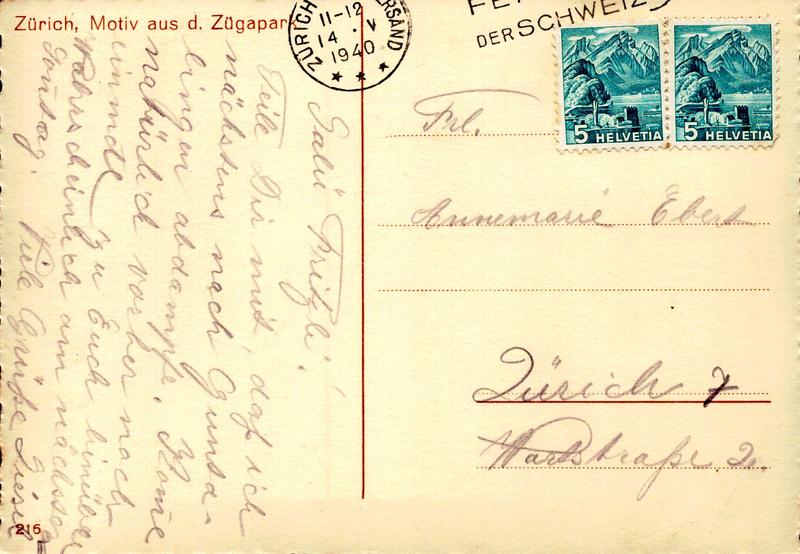 Zürich, Motiv aus d. Zügapark
ZÜRICH
VERSAND
11-12
14 · V
1940
DER SCHWEIZ
5 HELVETIA
5 HELVETIA
Salü
Teile Dir mit, daß ich
nächstens nach
lingen abdampfe. Kome
natürlich vorher noch
einmal zu Euch hinüber
Wahrscheinlich am nächsten
Sontag. Viele Grüße
Frl.
Annemarie Ebert
Zürich 7
216